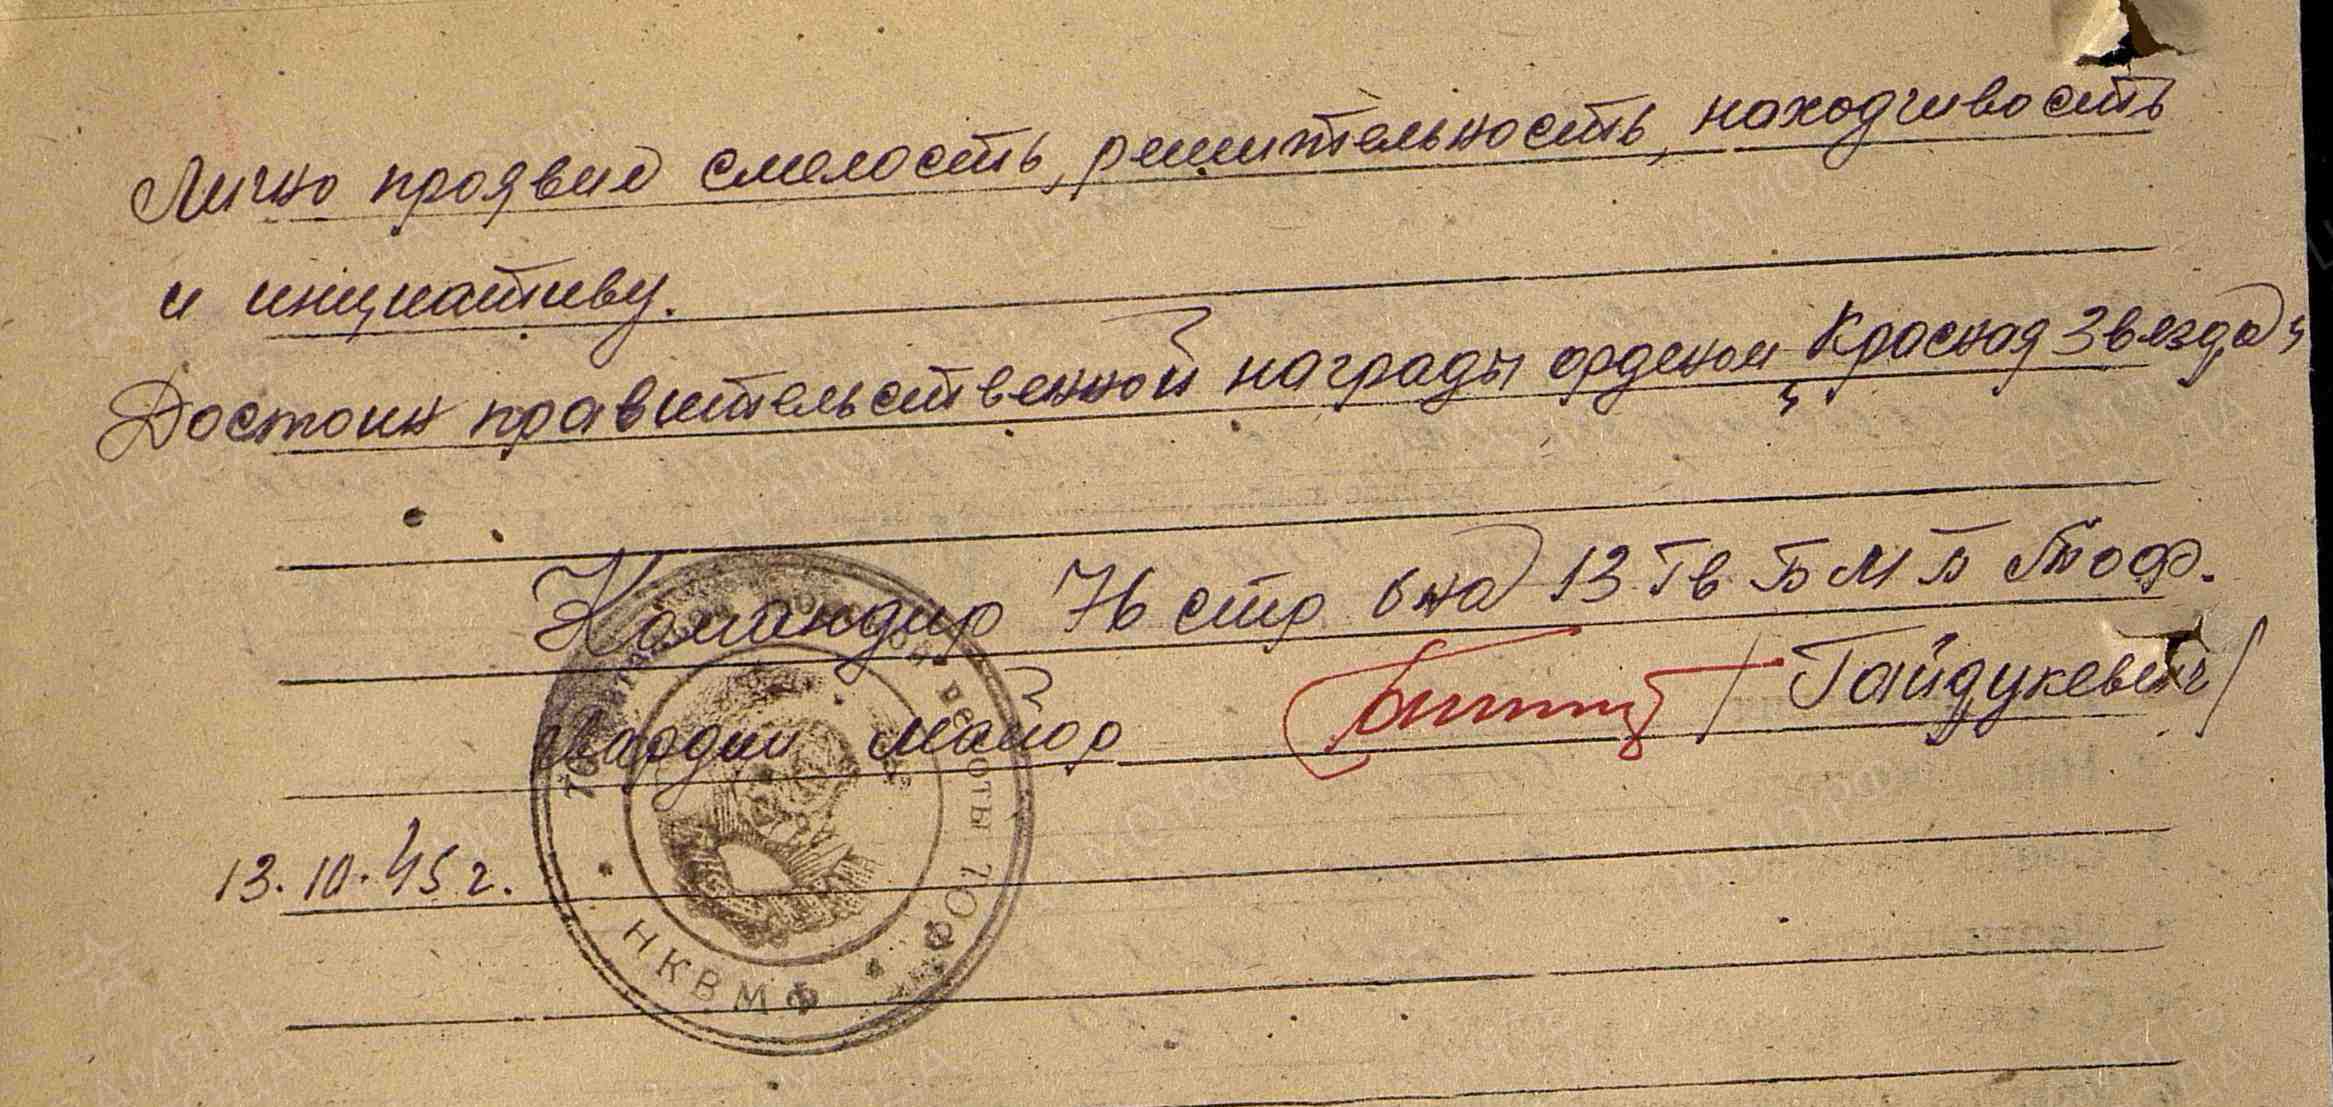 Лично проявил смелость, решительность, находчивость
и инициативу.
Достоин правительственной награды орденом „Красная Звезда“
Командир 76 стр б-на 13 Гв Б М П Тоф.
гвардии майор / Гайдукевич /
13.10.45 г.
РОТЫ ТОФ
НКВМФ